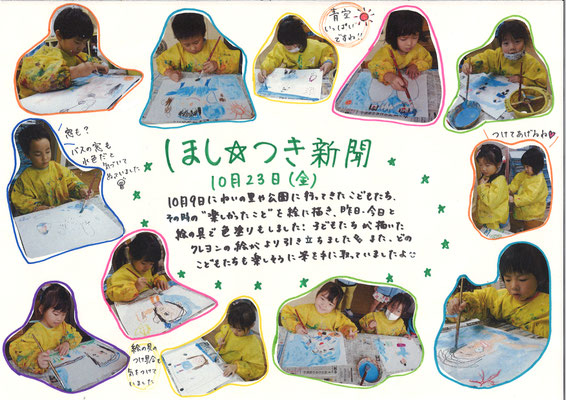 青空
いっぱい
ですね!!
窓も?
バスの窓も
水色だと
気づいて
ぬっていました
つけてあげるね
ほし☆つき新聞
10月23日(金)
10月9日にゆいの里や公園に行ってきたこどもたち。
その時の"楽しかったこと"を絵に描き、昨日・今日と
絵の具で色塗りもしました! 子どもたちが描いた
クレヨンの絵がより引き立ちました また、どの
こどもたちも楽しそうに筆を手に取っていましたよ
絵の具の
つけ具合も
気をつけて
いました